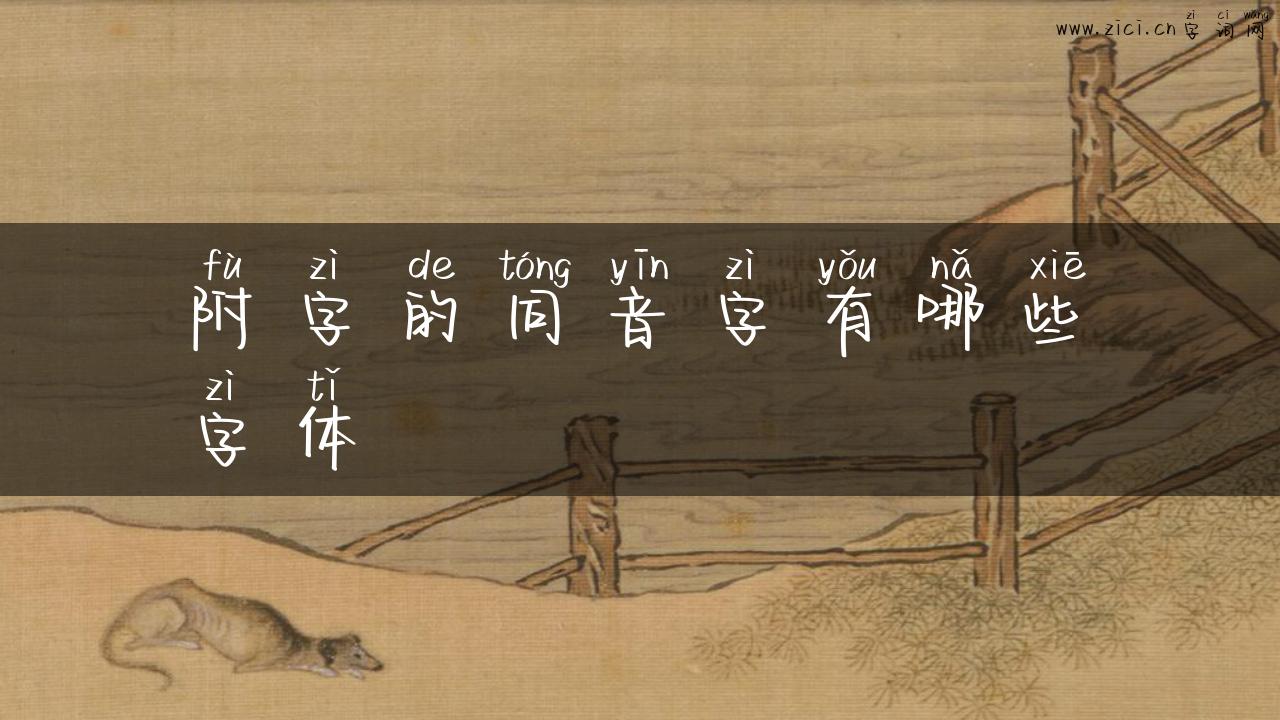 zì cì wǎng
www.zici.cn 字词网
fù zì de tóng yīn zì yǒu nǎ xiē
附字的同音字有哪些
zì tǐ
字体